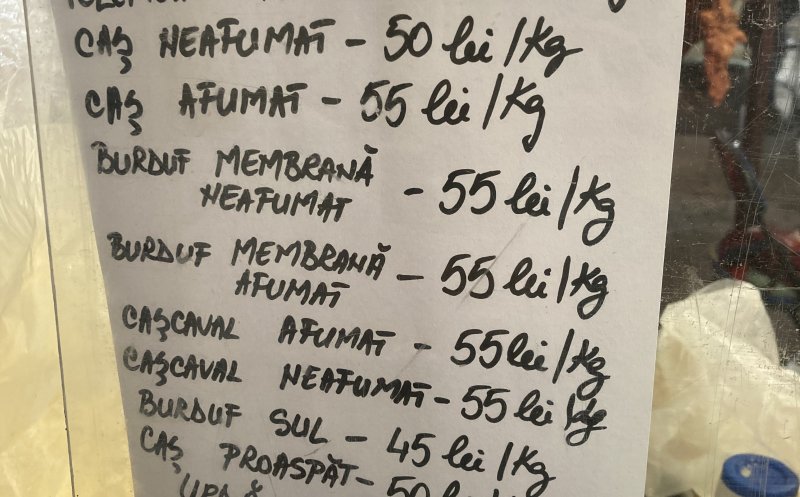 CAȘ NEAFUMAT - 50 lei/kg
CAȘ AFUMAT - 55 lei/kg
BURDUF MEMBRANĂ
NEAFUMAT - 55 lei/kg
BURDUF MEMBRANĂ
AFUMAT - 55 lei/kg
CAȘCAVAL AFUMAT - 55 lei/kg
CAȘCAVAL NEAFUMAT - 55 lei/kg
BURDUF SUL - 45 lei/kg
CAȘ PROASPĂT - 50 lei/kg